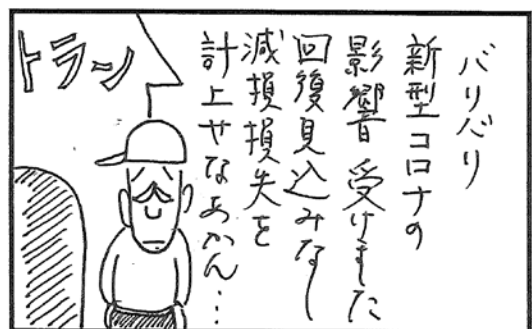 バリバリ
新型コロナの
影響受けました
回復見込みなし
減損損失を
計上せなあかん…
トラン